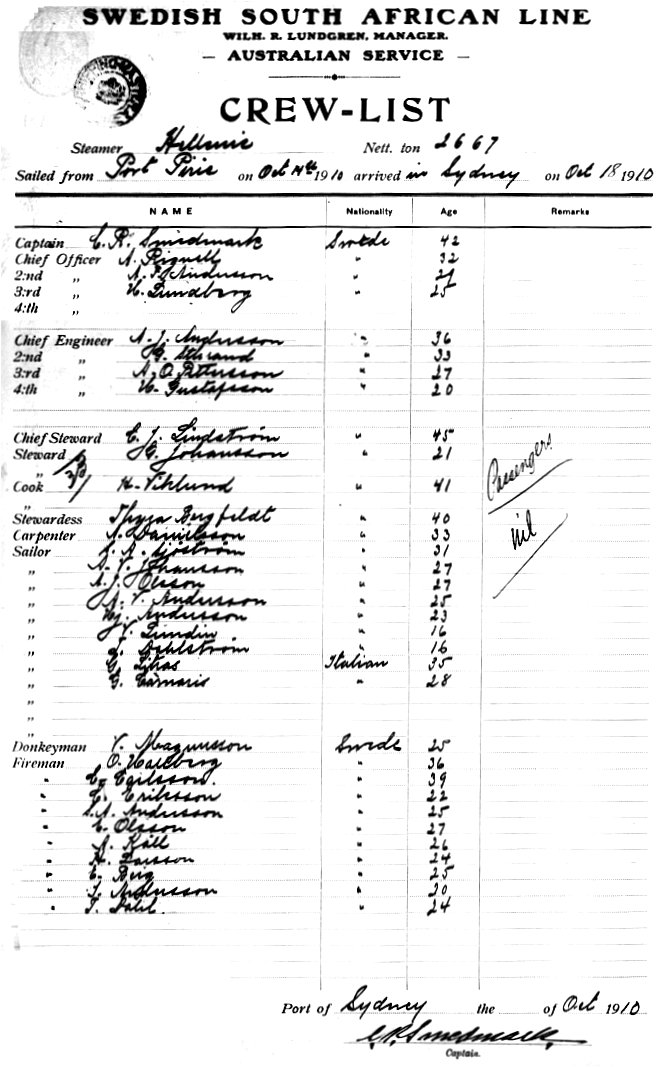 SWEDISH SOUTH AFRICAN LINE
WILH. R. LUNDGREN, MANAGER.
— AUSTRALIAN SERVICE —
CREW-LIST
Steamer Hellenic Nett. ton 2667
Sailed from Port Pirie on Oct 14th 1910 arrived in Sydney on Oct 18 1910
NAME Nationality Age Remarks
Captain C. R. Smedmark Swede 42
Chief Officer A. " 32
2:nd „ A. F. Andersson "
3:rd „ H. Lundberg " 25
4:th „
Chief Engineer A. J. Andersson " 36
2:nd „ G. Strand " 33
3:rd „ A. O. Pettersson " 27
4:th „ H. Gustafsson " 20
Chief Steward E. J. Lindström " 45
Steward G. Johansson " 21
„
Cook H. Viklund " 41
„
Passengers
nil
Stewardess Thyra Bergfeldt " 40
Carpenter A. Danielsson " 33
Sailor A. Sjöström " 31
„ A. V. Johansson " 27
„ A. J. Olsson " 27
„ A. V. Andersson " 25
„ Hj. Andersson " 23
„ J. V. Lundin " 16
„ Dahlström " 16
„ G. Litras Italian 35
„ G. Camaris " 28
„
„
„
Donkeyman V. Magnusson Swede 25
Fireman O. Hallberg " 36
" C. Carlsson. " 39
" E. Eriksson " 22
" S. A. Andersson " 25
" E. Olsson " 27
" A. Käll " 26
" H. Larsson " 24
" E. Berg " 25
" J. Andersson " 30
" T. Dahl. " 24
Port of Sydney the of Oct 1910
C. R. Smedmark.
Captain.